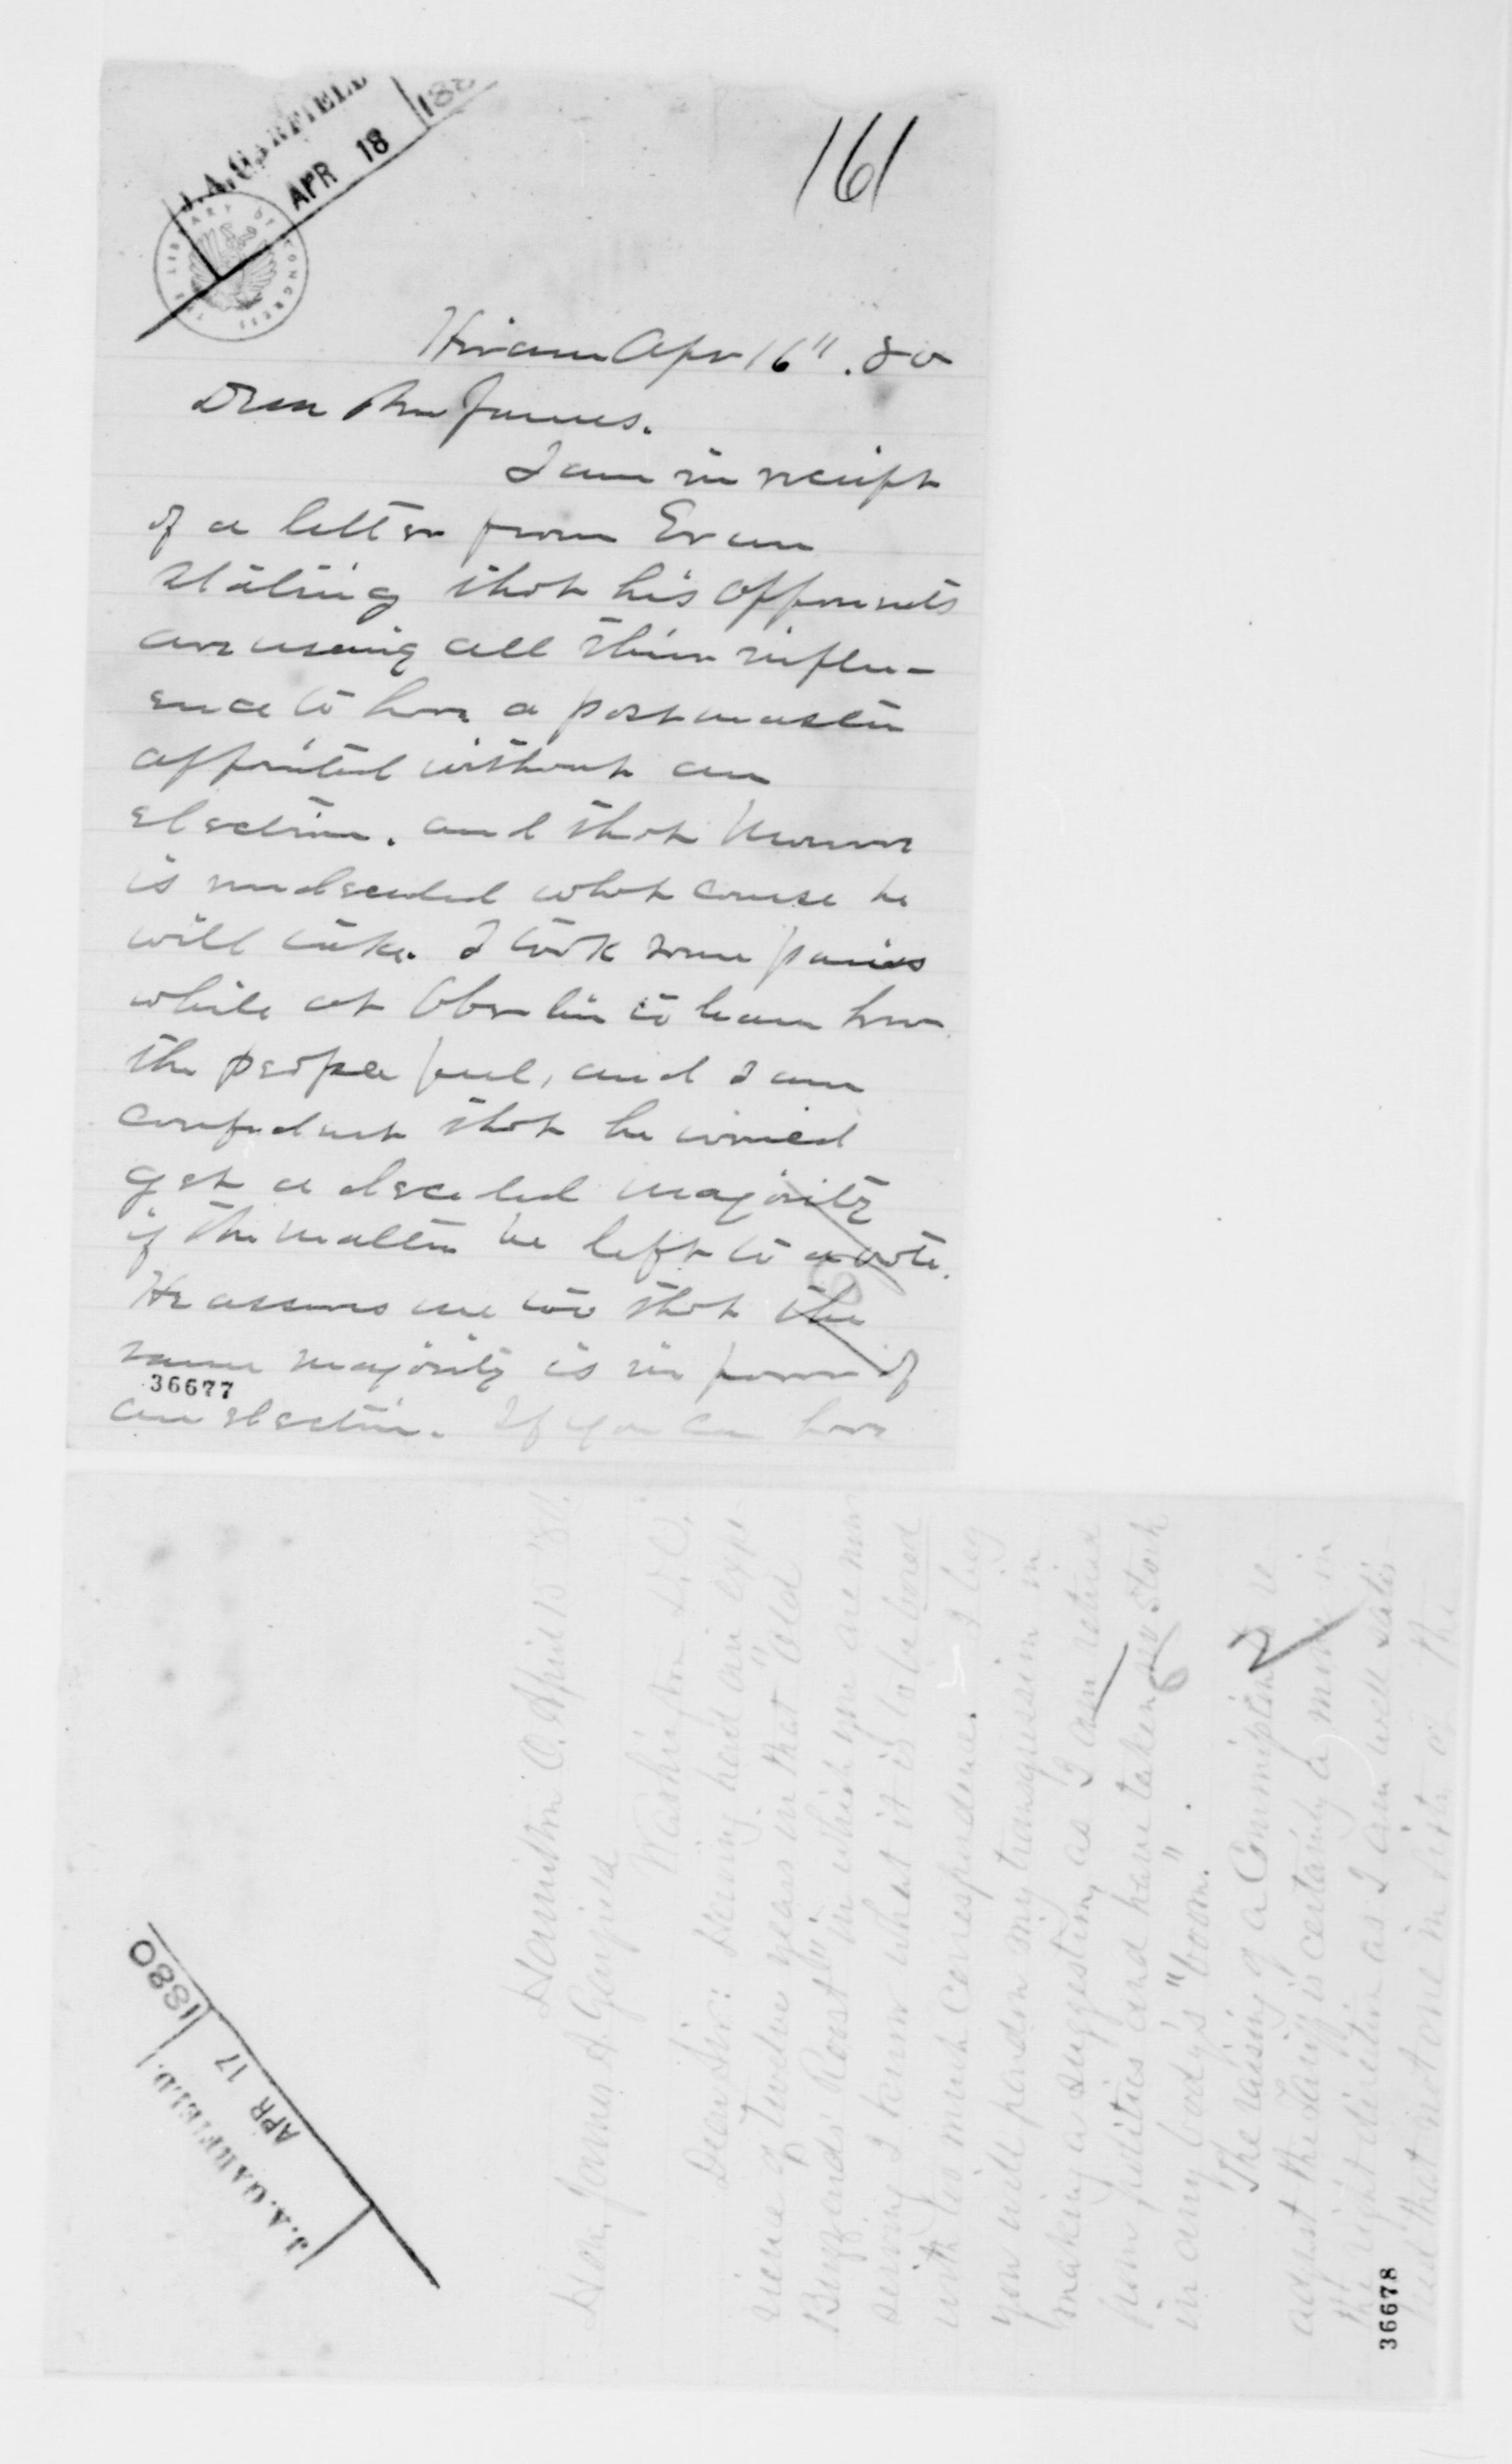 J.A. GARFIELD
APR 18 188
THE LIBRARY OF CONGRESS
161
Hiram Apr 16". 80
Dear Bro James.
I am in receipt
of a letter from Evan
stating that his opponents
are using all their influ-
ence to have a postmaster
appointed without an
election. and that Monroe
is undecided what course he
will take. I took some pains
while at Oberlin to learn how
the people feel, and I am
confident that he would
get a decided majority
if the matter be left to a vote.
He assures me too that the
same majority is in favor of
an election. If you can have
36677
J.A. GARFIELD.
APR 17 1880
Hamilton O. April 15 '80.
Hon. James A. Garfield
Washington D.C.
Dear Sir: Having had an expe-
rience of twelve years in that "old
Buzzards Roost" in which you are now
serving I know what it is to be bored
with too much correspondence. I beg
you will pardon my transgression in
making a suggestion, as I am retired
from politics and have taken no stock
in any body's "boom".
The raising of a Committee
adjust the Tariff is certainly a move in
the right direction as I am well satis-
fied that not one in of the
6
2
36678